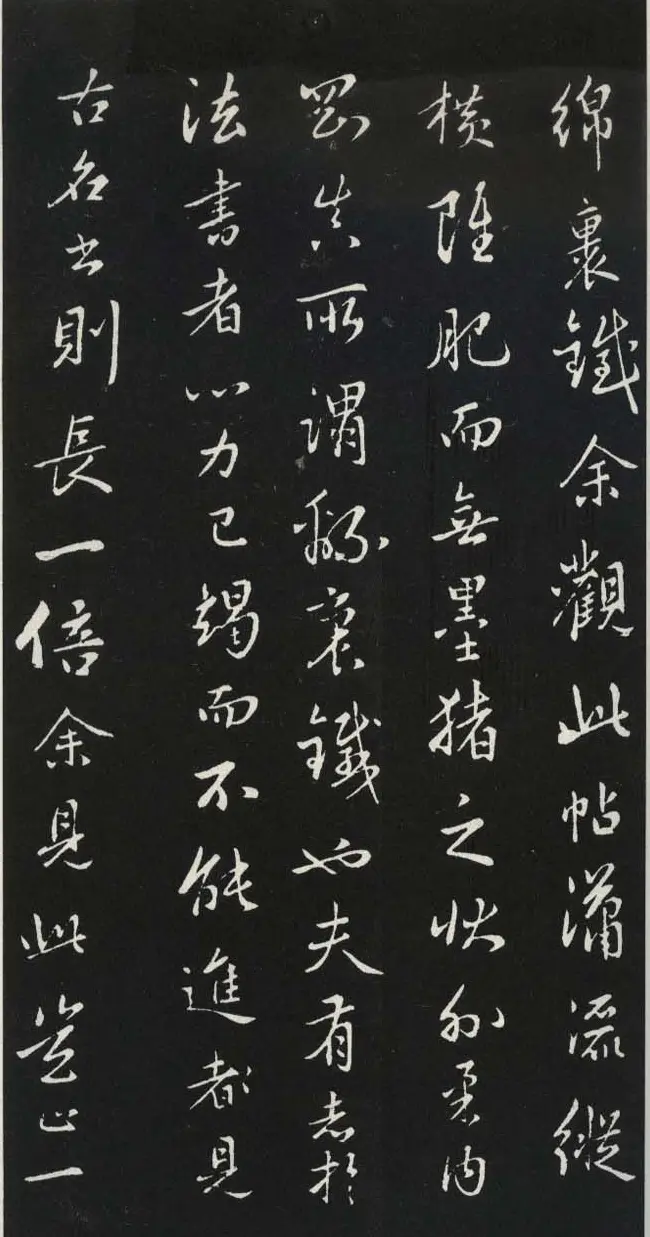 綿裹鐵余觀此帖瀟流縱
橫雖肥而無墨豬之狀外柔內
剛真所謂綿裹鐵也夫有志於
法書者心力已竭而不能進者見
古名書則長一倍余見此豈止一